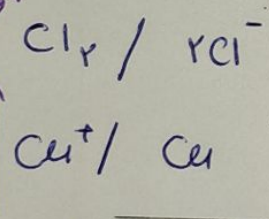 Cl۲ / ۲Cl⁻
Cu⁺/ Cu